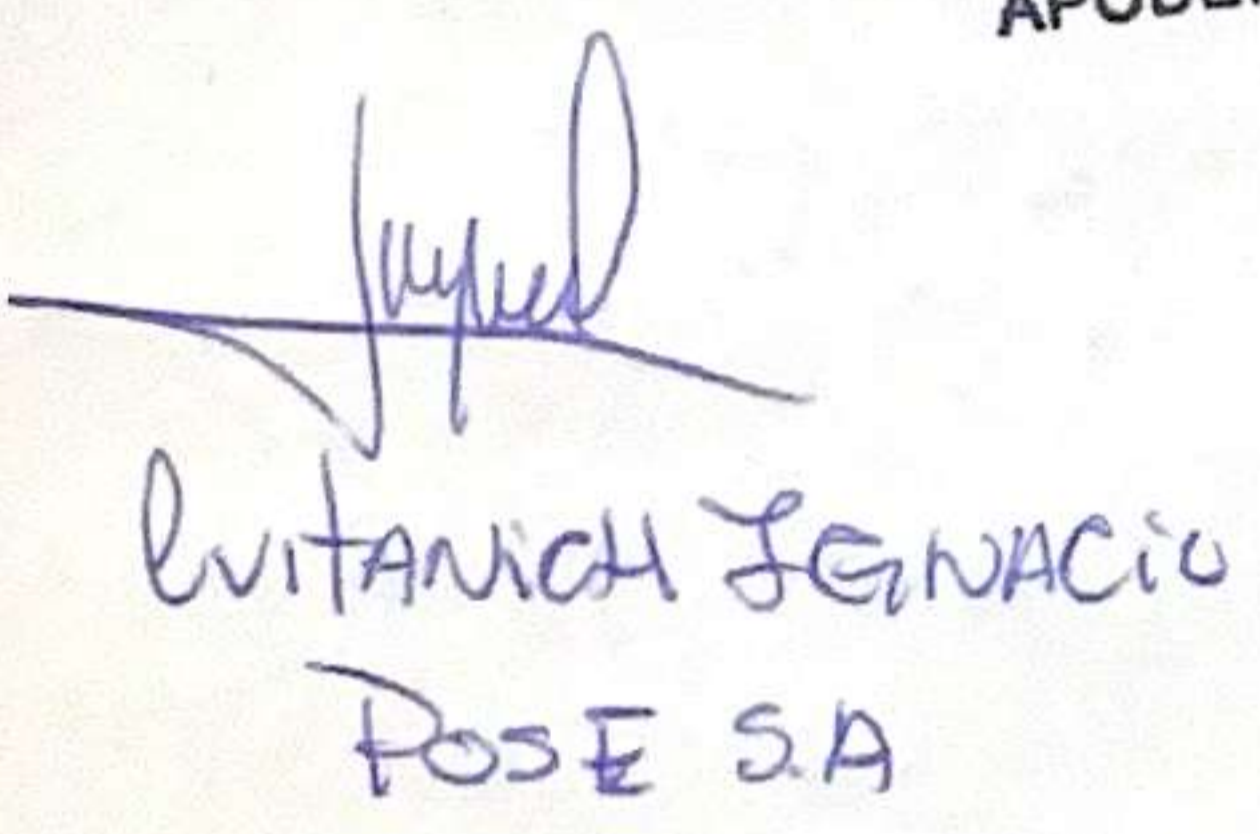 APODE
CVITANICH IGNACIO
POSE S.A